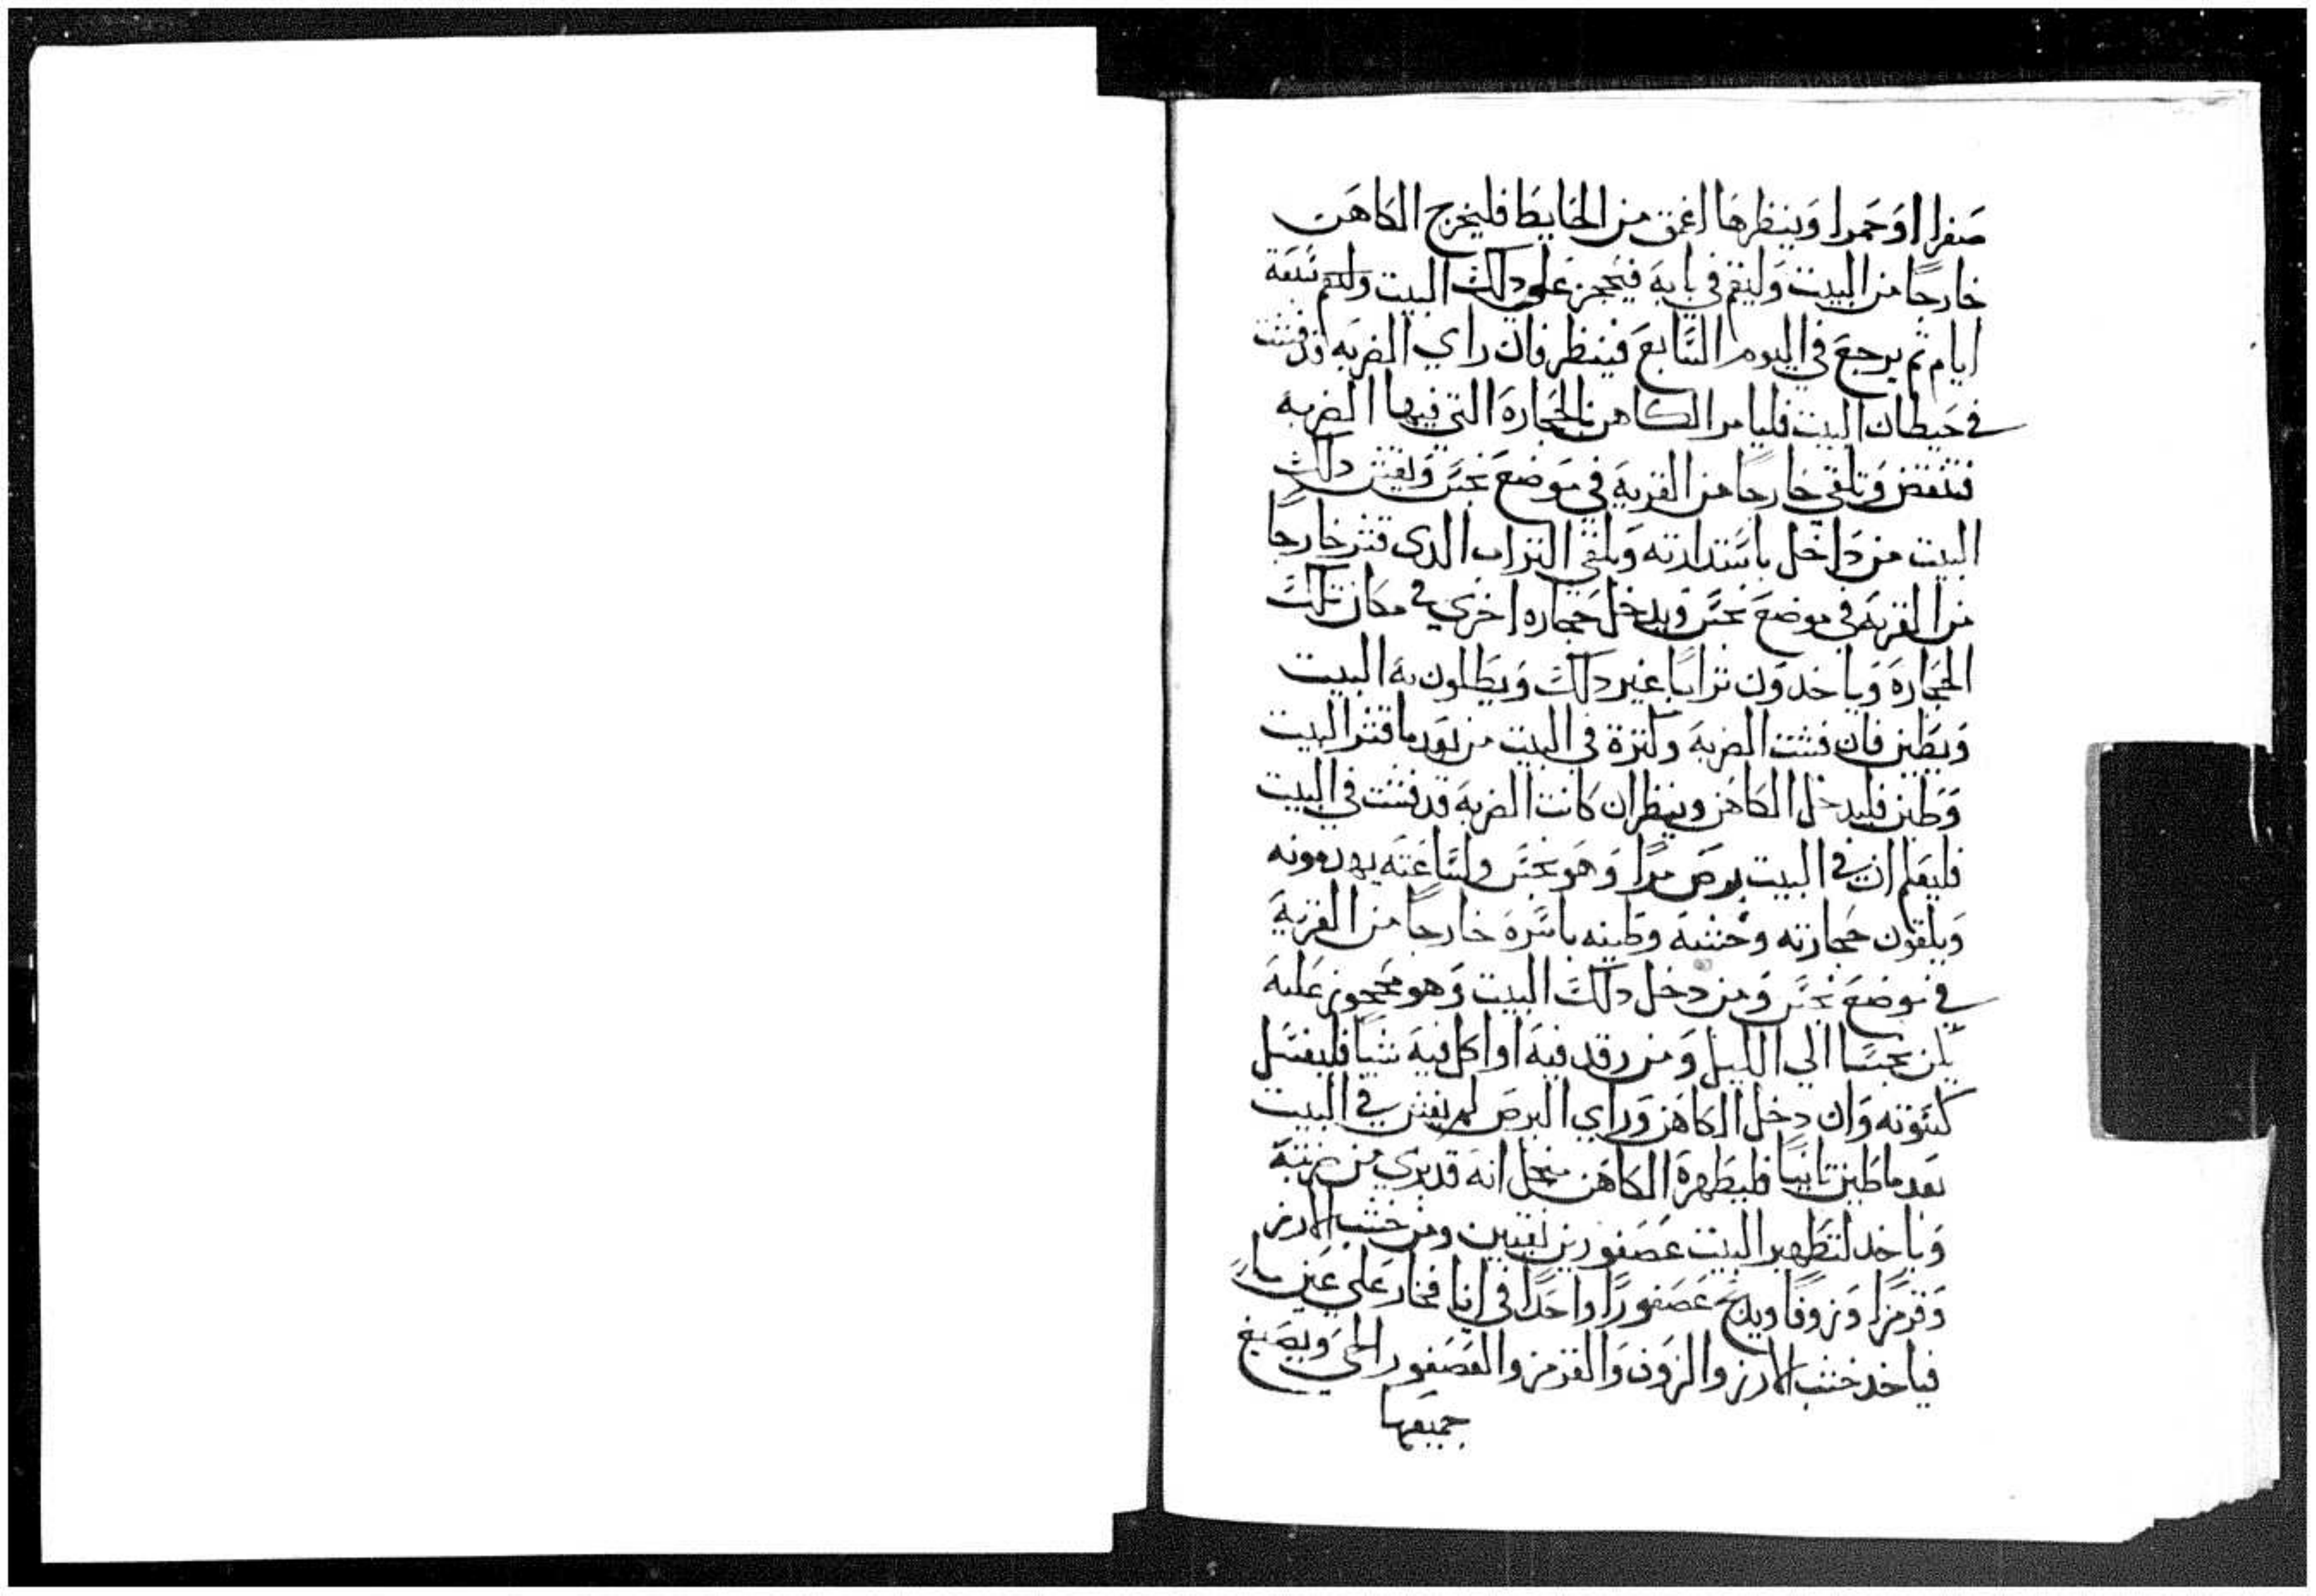 صفرا او حمرا وينظرها اغمق من الحايط فليخرج الكاهن
خارجا من البيت وليقم في بابه فيحجز على دلك البيت وليقم سبعة
ايام ثم يرجع في اليوم السابع فينظر فان راي الضربه قد فشت
في حيطان البيت فليامر الكاهن بالحجارة التي فيها الضربه
فتنقض وتلقي خارجا من القريه في موضع نجس ويقشر دلك
البيت من داخل باستدارته ويلقي التراب الدى قشر خارجا
من القريه في موضع نجس ويدخل حجاره اخري في مكان تلك
الحجارة وياخدون ترابا غير دلك ويطلون به البيت
ويطين فان فشت الضربه وكترة في البيت من بعد ما قشر البيت
وطين فليدخل الكاهن وينظر ان كانت الضربه قد فشت في البيت
فليعلم ان في البيت برص مرا وهو نجس ولساعته يهدمونه
ويلقون حجارته وخشبه وطينه باسره خارجا من القريه
في موضع نجس ومن دخل دلك البيت وهو محجوز عليه
يكن نجسا الي الليل ومن رقد فيه او اكل فيه شيا فليغسل
كسوته وان دخل الكاهن وراي البرص لم يفش في البيت
بعد ما طين تانيا فليطهرة الكاهن من اجل انه قد بري من ضربته
وياخد لتطهير البيت عصفورين نقيين ومن خشب الارز
وقرمزا وزوفا ويدبح عصفورا واحدا في انا فخار على عين ما
فياخد خشب الارز والزوفا والقرمز والعصفور الحي ويصبغ
جميعها